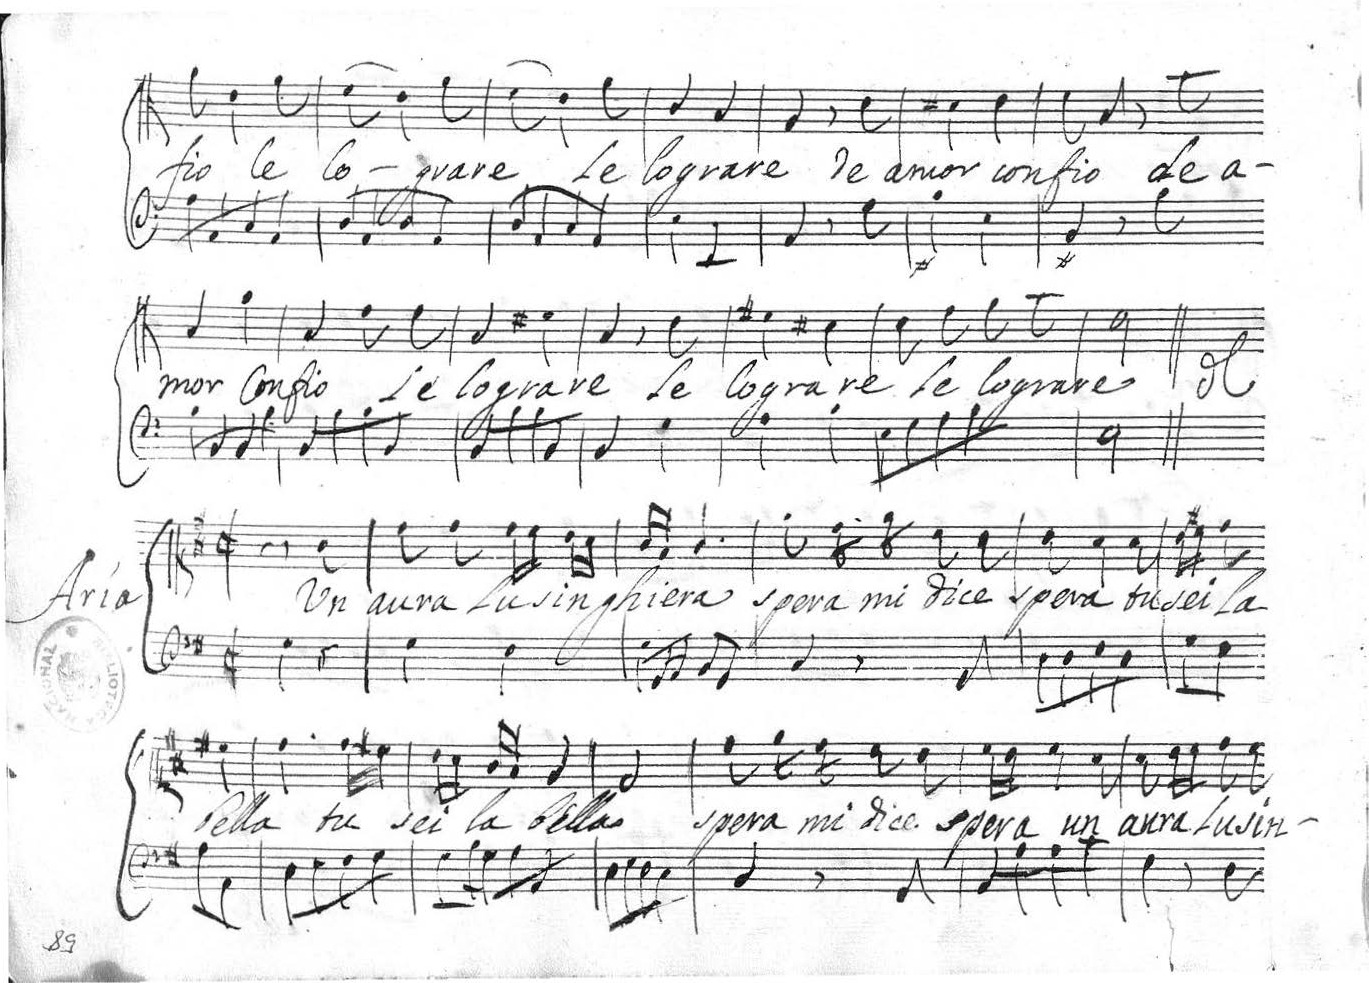 fio le lo - grare Le lograre De amor confio de a-
mor Confio Le lograre Le lograre Le lograre
Aria
Un aura Lusinghiera spera mi dice spera tu sei la
bella tu sei la bella spera mi dice spera un aura Lusin-
BIBLIOTECA NACIONAL
89